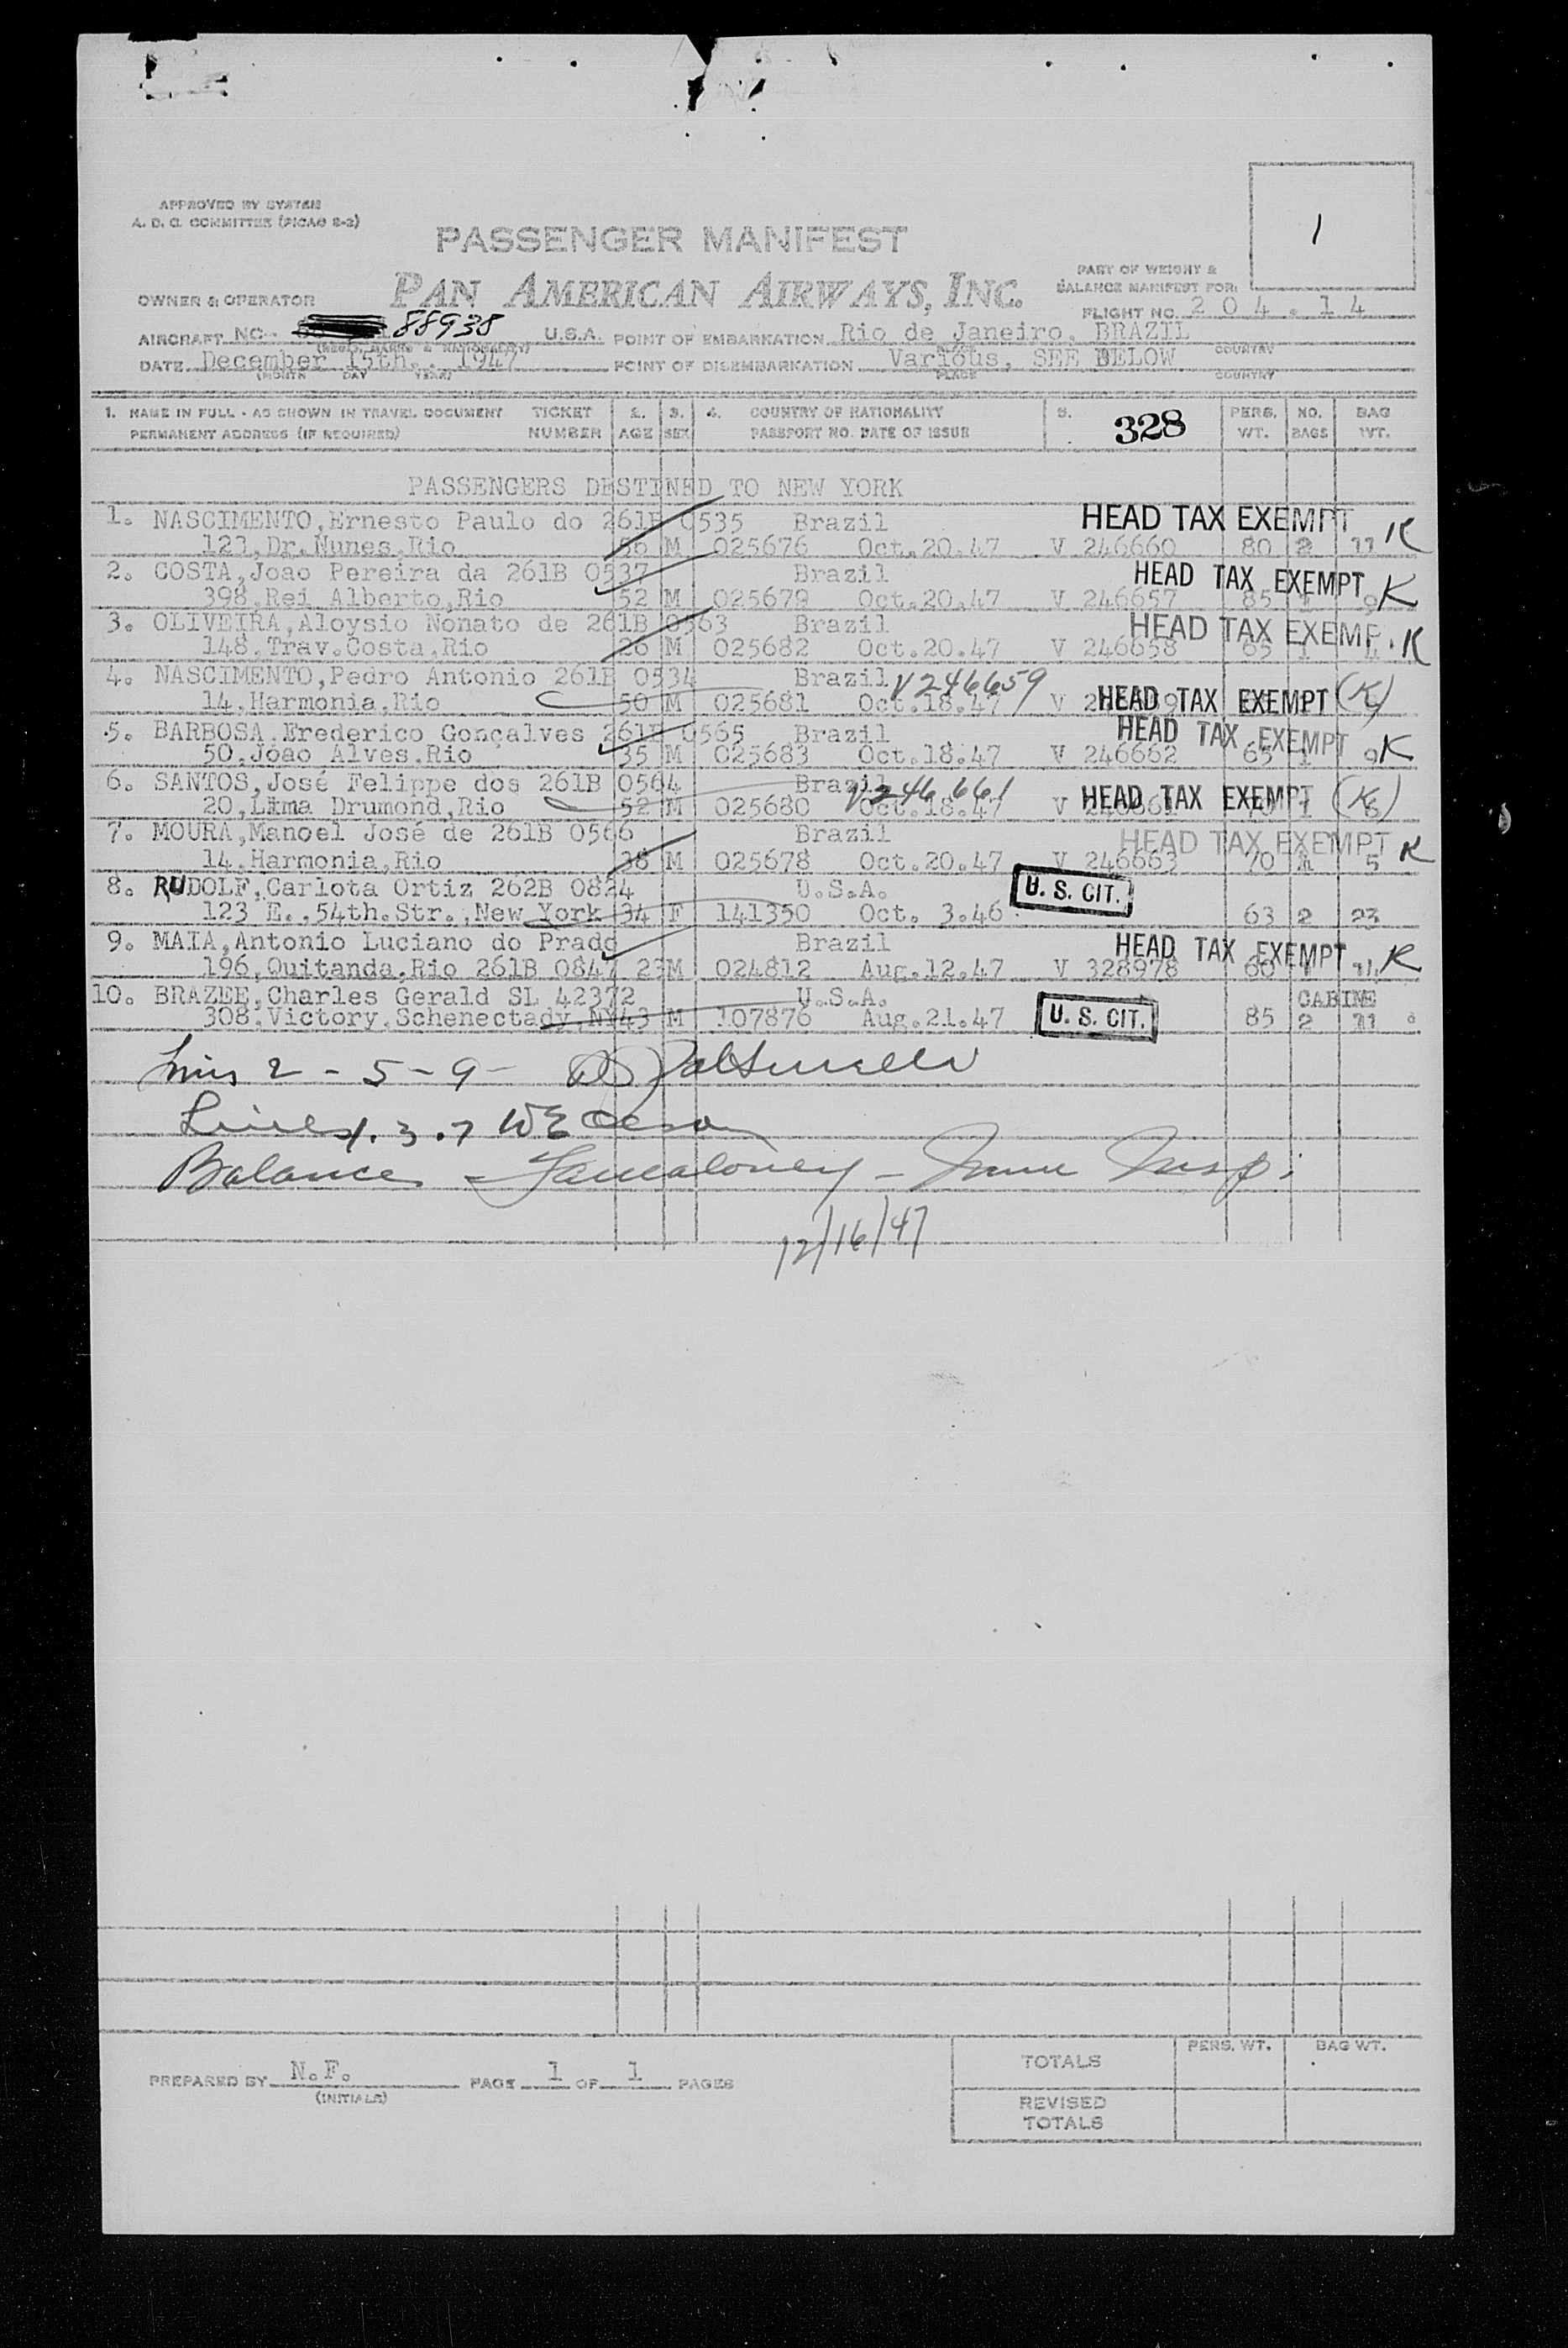 1
APPROVED BY SYSTEM
A. D. C. COMMITTEE (PICAO 8-2)
PASSENGER MANIFEST
PART OF WEIGHT &
BALANCE MANIFEST FOR:
OWNER & OPERATOR PAN AMERICAN AIRWAYS, INC.
FLIGHT NO. 204.14
AIRCRAFT NC- 88938 U.S.A. POINT OF EMBARKATION Rio de Janeiro, BRAZIL
(REG'L MARKS & NATIONALITY) PLACE COUNTRY
DATE December 15th., 1947 POINT OF DISEMBARKATION Various, SEE BELOW
(MONTH DAY YEAR) PLACE COUNTRY
1. NAME IN FULL - AS SHOWN IN TRAVEL DOCUMENT TICKET 2. 3. 4. COUNTRY OF NATIONALITY 5. 328 PERS. NO. BAG
PERMANENT ADDRESS (IF REQUIRED) NUMBER AGE SEX PASSPORT NO. DATE OF ISSUE WT. BAGS WT.
PASSENGERS DESTINED TO NEW YORK
1. NASCIMENTO,Ernesto Paulo do 261B 0535 Brazil HEAD TAX EXEMPT K
123,Dr.Nunes,Rio M 025676 Oct.20.47 V 246660 80 2 11
2. COSTA,Joao Pereira da 261B 0537 Brazil HEAD TAX EXEMPT K
398,Rei Alberto,Rio 52 M 025679 Oct.20.47 V 246657 85 1 9
3. OLIVEIRA,Aloysio Nonato de 261B 0563 Brazil HEAD TAX EXEMP. K
148,Trav.Costa,Rio 26 M 025682 Oct.20.47 V 246658 65 1 4
4. NASCIMENTO,Pedro Antonio 261B 0534 Brazil V246659
14,Harmonia,Rio 50 M 025681 Oct.18.47 V HEAD TAX EXEMPT (K)
5. BARBOSA.Frederico Gonçalves 261B 0565 Brazil HEAD TAX EXEMPT K
50,Joao Alves,Rio 35 M 025683 Oct.18.47 V 246662 65 1 9
6. SANTOS,José Felippe dos 261B 0564 Brazil V246661
20,Lima Drumond,Rio 52 M 025680 Oct.18.47 V HEAD TAX EXEMPT (K)
7. MOURA,Manoel José de 261B 0566 Brazil HEAD TAX EXEMPT K
14,Harmonia,Rio 38 M 025678 Oct.20.47 V 246663 70 1 5
8. RUDOLF,Carlota Ortiz 262B 0824 U.S.A. U. S. CIT.
123 E.,54th.Str.,New York 34 F 141350 Oct. 3.46 63 2 23
9. MAIA,Antonio Luciano do Prado Brazil HEAD TAX EXEMPT K
196,Quitanda,Rio 261B 0847 23 M 024812 Aug.12.47 V 328978 60 1 14
10. BRAZEE,Charles Gerald SL 42372 U.S.A. CABINE
308,Victory,Schenectady,NY 43 M 107876 Aug.21.47 U. S. CIT. 85 2 11
2 - 5 - 9 -
Lines 1. 3. 7 WE Olson
Balance - - Imm Insp.
12/16/47
PREPARED BY N.F. PAGE 1 OF 1 PAGES
(INITIALS)
PERS. WT. BAG WT.
TOTALS
REVISED
TOTALS